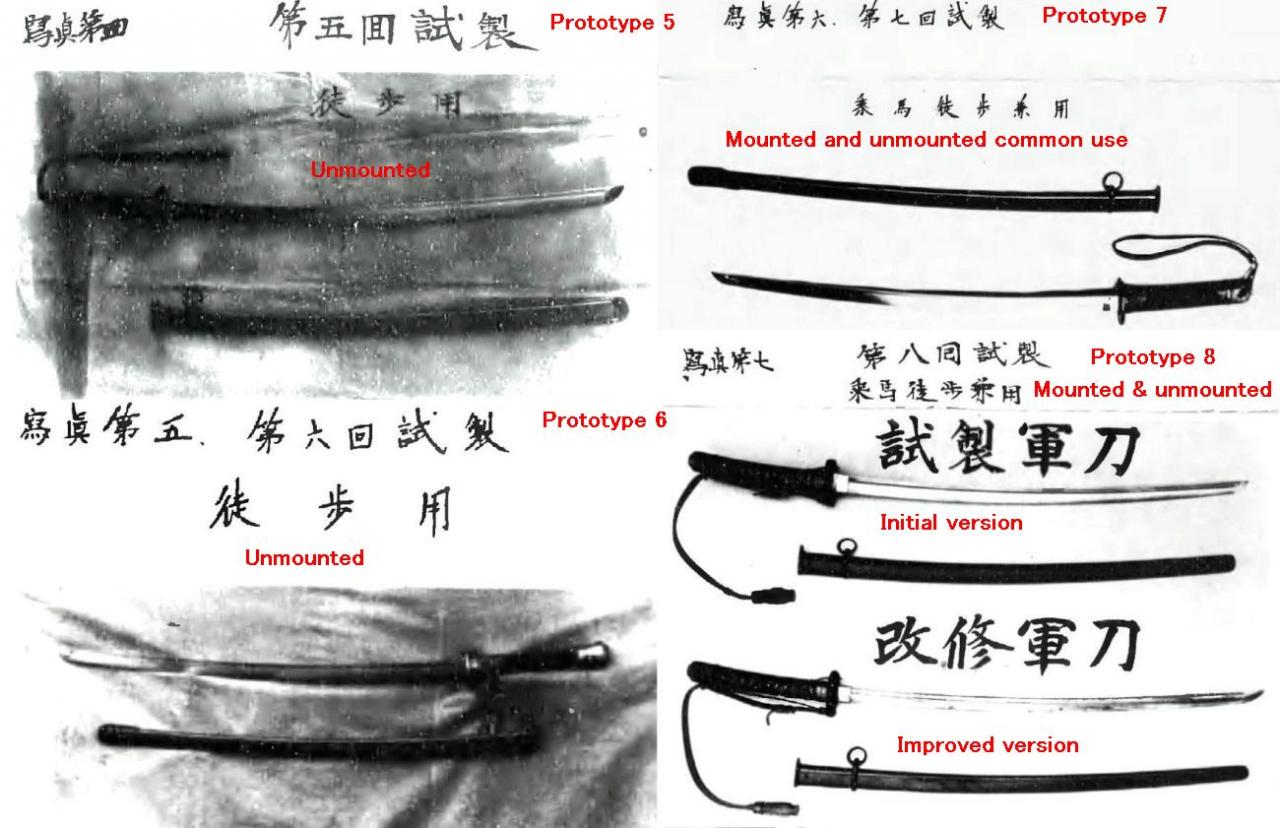 寫眞第四 第五囬試製 Prototype 5
徒步用
Unmounted
寫眞第五. 第六回試製 Prototype 6
徒步用
Unmounted
寫眞第六. 第七回試製 Prototype 7
乘馬徒步兼用
Mounted and unmounted common use
寫眞第七 第八回試製 Prototype 8
乘馬徒步兼用 Mounted & unmounted
試製軍刀
Initial version
改修軍刀
Improved version